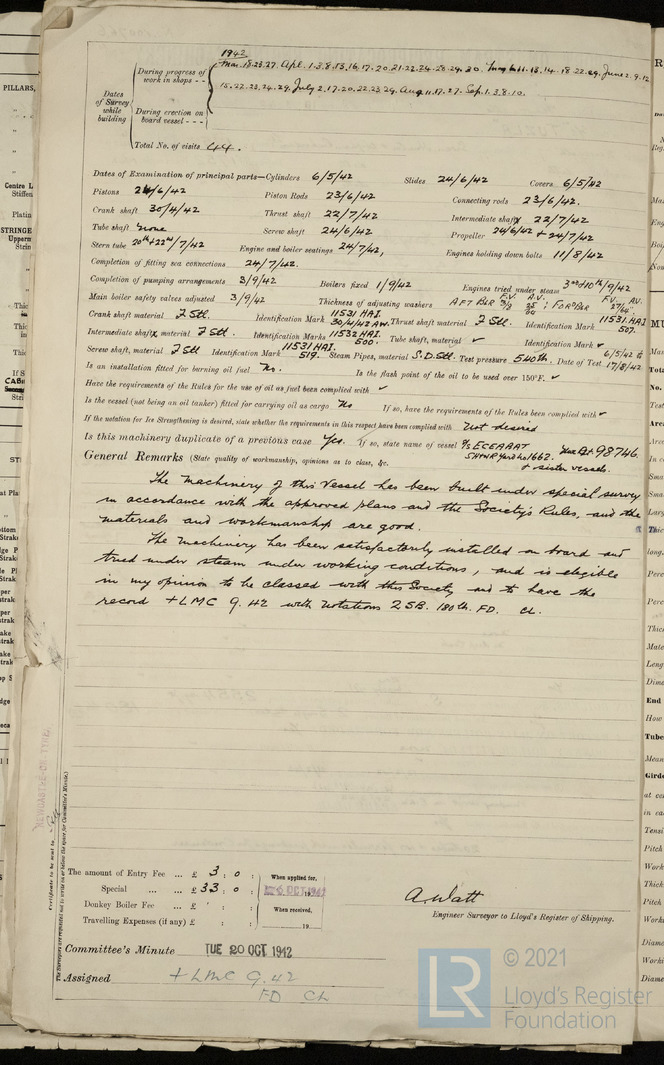 1942
Mar. 18.23.27. Apl. 1.3.8.13.16.17.20.21.22.24.28.29.30. 11.13.14.18.22.29. June 2.9.12
15.22.23.24.29. July 2.17.20.22.23.24. Aug 11.17.27. Sep. 1.3.8.10.
Dates of Survey while building
During progress of work in shops - -
During erection on board vessel - - -
Total No. of visits 44.
Dates of Examination of principal parts—Cylinders 6/5/42 Slides 24/6/42 Covers 6/5/42
Pistons 24/6/42 Piston Rods 23/6/42 Connecting rods 23/6/42.
Crank shaft 30/4/42 Thrust shaft 22/7/42 Intermediate shaft 22/7/42
Tube shaft none Screw shaft 24/6/42 Propeller 24/6/42 + 24/7/42
Stern tube 20th + 22nd/7/42 Engine and boiler seatings 24/7/42, Engines holding down bolts 11/8/42
Completion of fitting sea connections 24/7/42.
Completion of pumping arrangements 3/9/42 Boilers fixed 1/9/42 Engines tried under steam 3rd + 10th/9/42
Main boiler safety valves adjusted 3/9/42 Thickness of adjusting washers AFT BLR F.V. 3/8 A.V. 25/64 ; FORD BLR F.V. 27/64 A.V.
Crank shaft material I Stl. Identification Mark 11531 HAI. 30/4/42 AW. Thrust shaft material I Stl. Identification Mark 11531.HAI 507.
Intermediate shafts, material I Stl. Identification Marks 11532 HAI. 500. Tube shaft, material ✓ Identification Mark ✓
Screw shaft, material I Stl Identification Mark 11531 HAI. 519. Steam Pipes, material S.D.Stl. Test pressure 540 lb. Date of Test 6/5/42 to 17/8/42
Is an installation fitted for burning oil fuel No. Is the flash point of the oil to be used over 150°F. ✓
Have the requirements of the Rules for the use of oil as fuel been complied with ✓
Is the vessel (not being an oil tanker) fitted for carrying oil as cargo No If so, have the requirements of the Rules been complied with ✓
If the notation for Ice Strengthening is desired, state whether the requirements in this respect have been complied with Not desired
Is this machinery duplicate of a previous case Yes. If so, state name of vessel S/S ECEABAT SHWR Yard No 1662. Nwc Rpt 98746.
+ sister vessels.
General Remarks (State quality of workmanship, opinions as to class, &c.
The machinery of this Vessel has been built under special survey
in accordance with the approved plans and the Society's Rules, and the
materials and workmanship are good.
The machinery has been satisfactorily installed on board and
tried under steam under working conditions, and is eligible
in my opinion to be classed with this Society and to have the
record +LMC 9.42 with notations 2SB. 180 lb. FD. CL.
NEWCASTLE-ON-TYNE.
Certificate to be sent to
The Surveyors are requested not to write on or below the space for Committee's Minute.
The amount of Entry Fee ... £ 3 : 0 :
Special ... ... £ 33 : 0 :
Donkey Boiler Fee ... £ : :
Travelling Expenses (if any) £ : :
When applied for,
6 OCT 1942
When received,
19
A Watt
Engineer Surveyor to Lloyd's Register of Shipping.
Committee's Minute TUE 20 OCT 1942
Assigned + LMC 9.42
FD CL
LR
© 2021
Lloyd's Register
Foundation